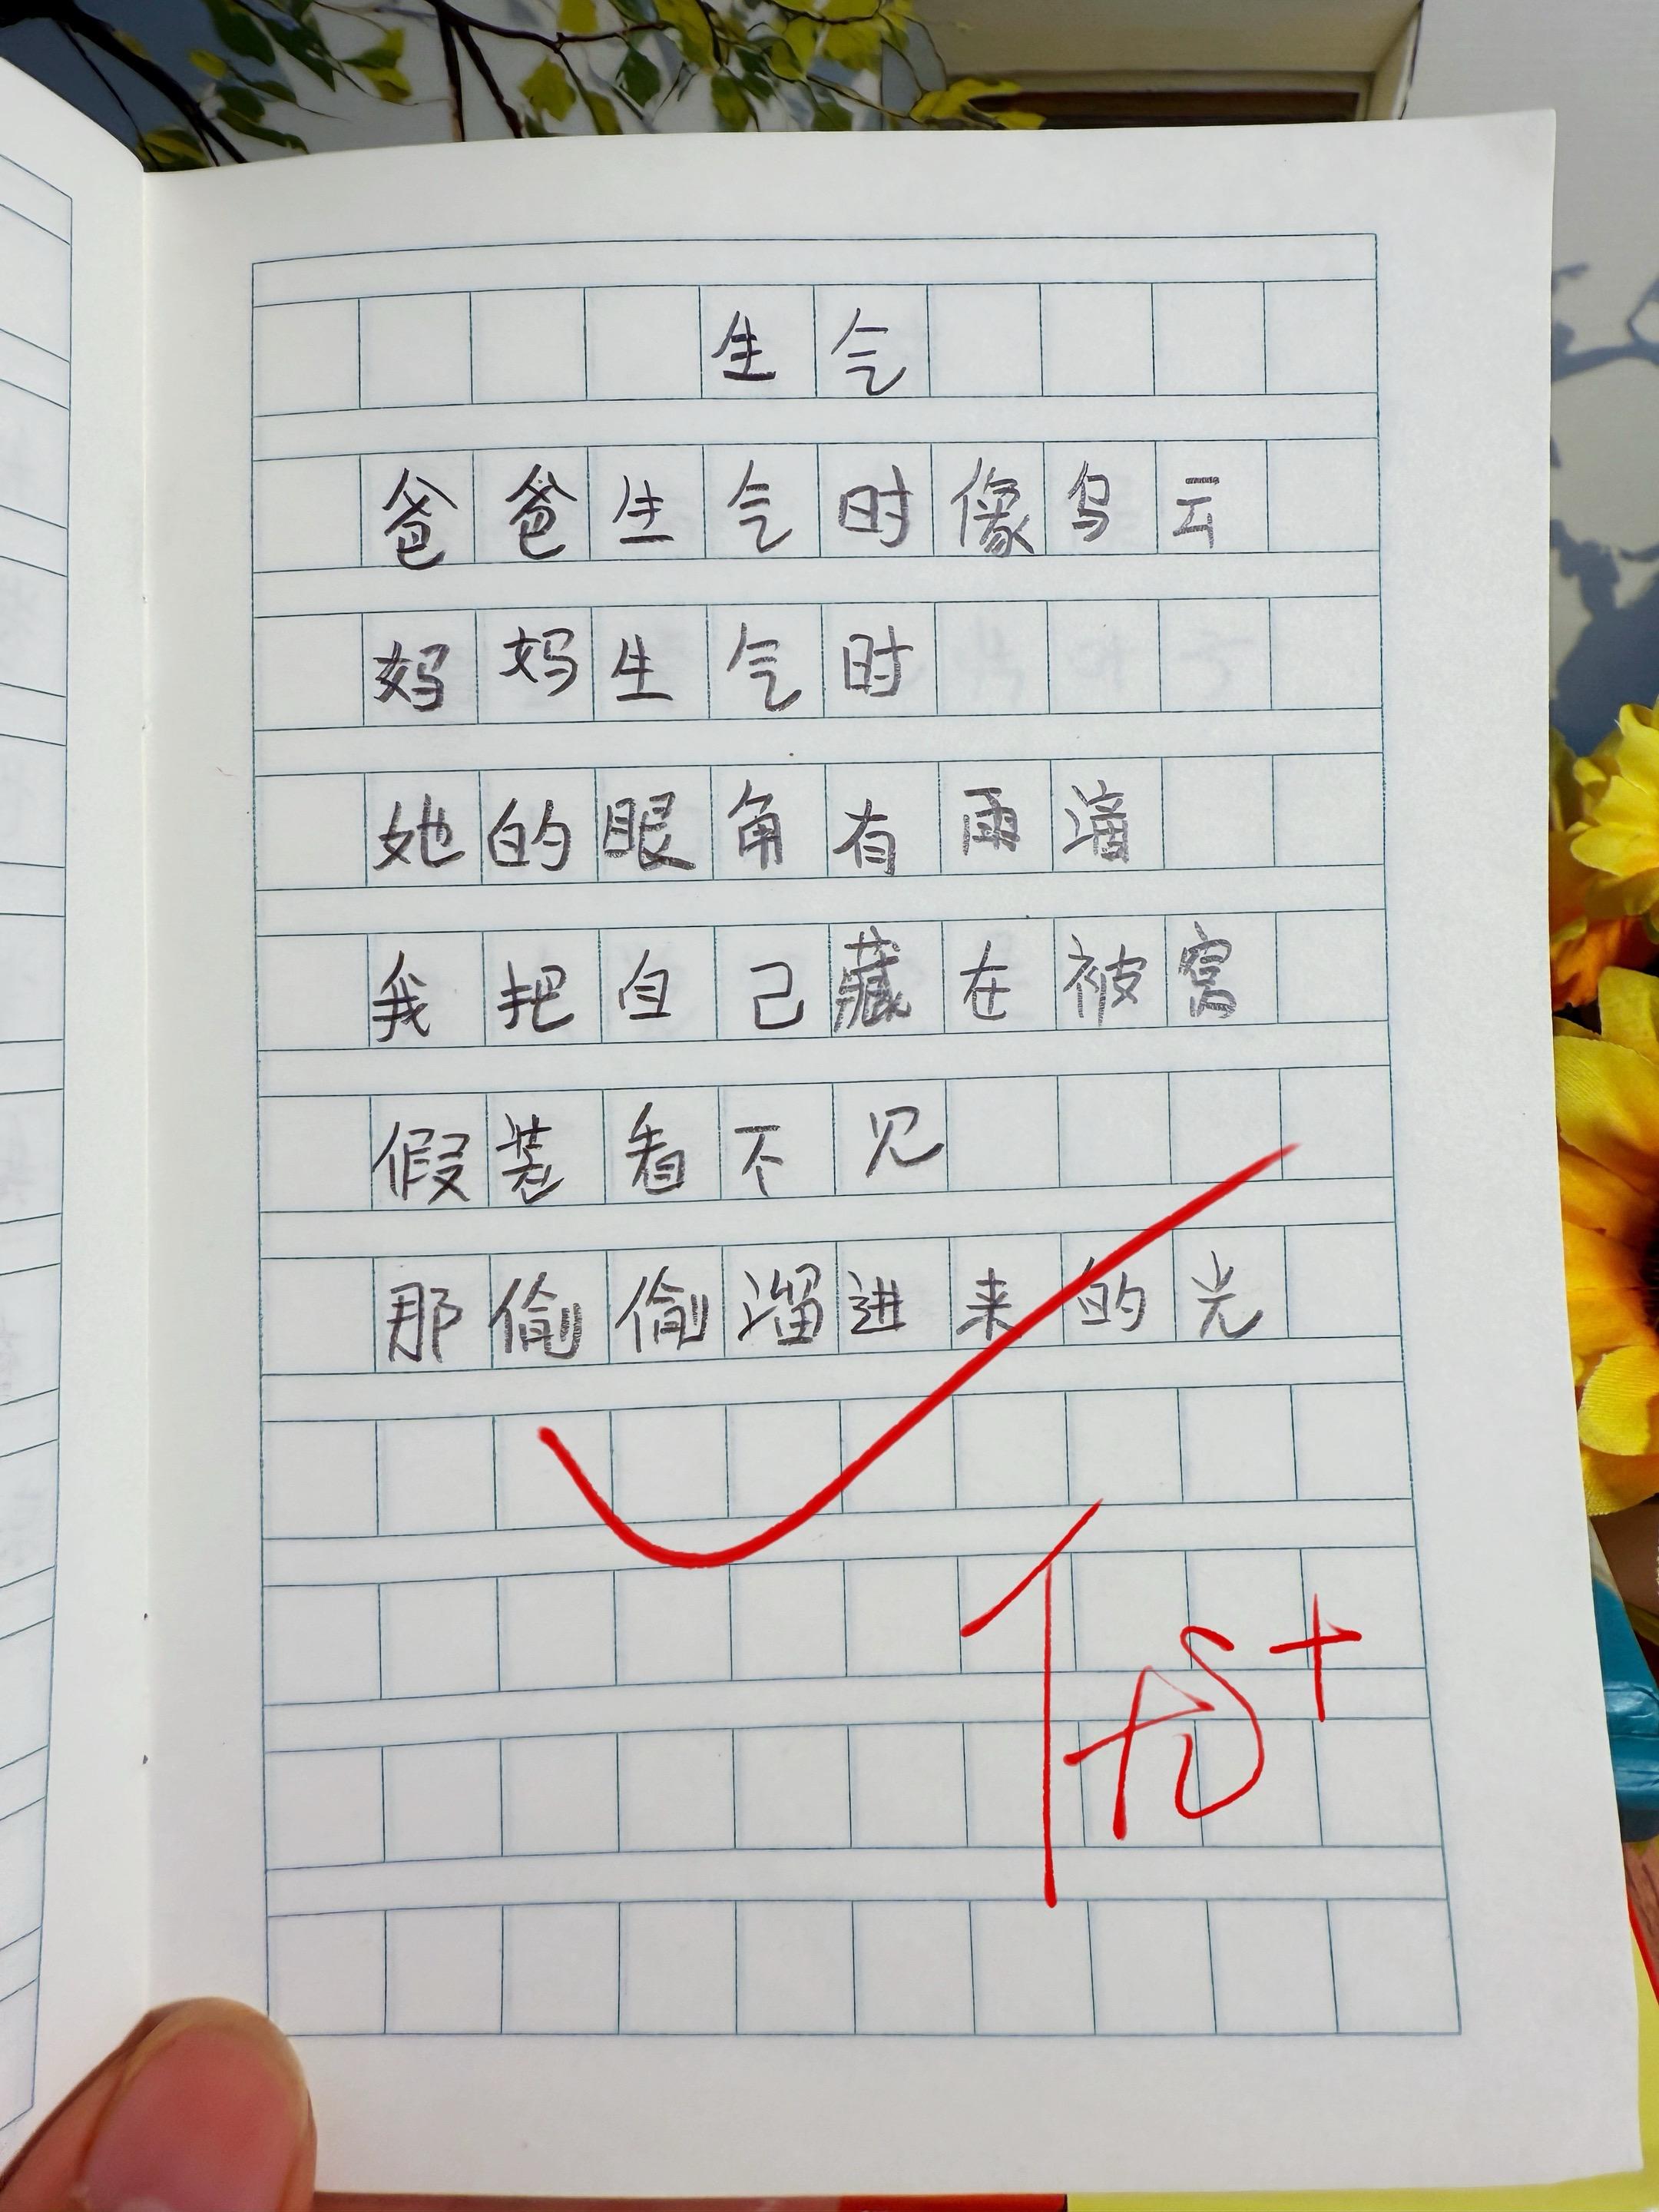 生气
爸爸生气时像乌云
妈妈生气时
她的眼角有雨滴
我把自己藏在被窝
假装看不见
那偷偷溜进来的光
优+